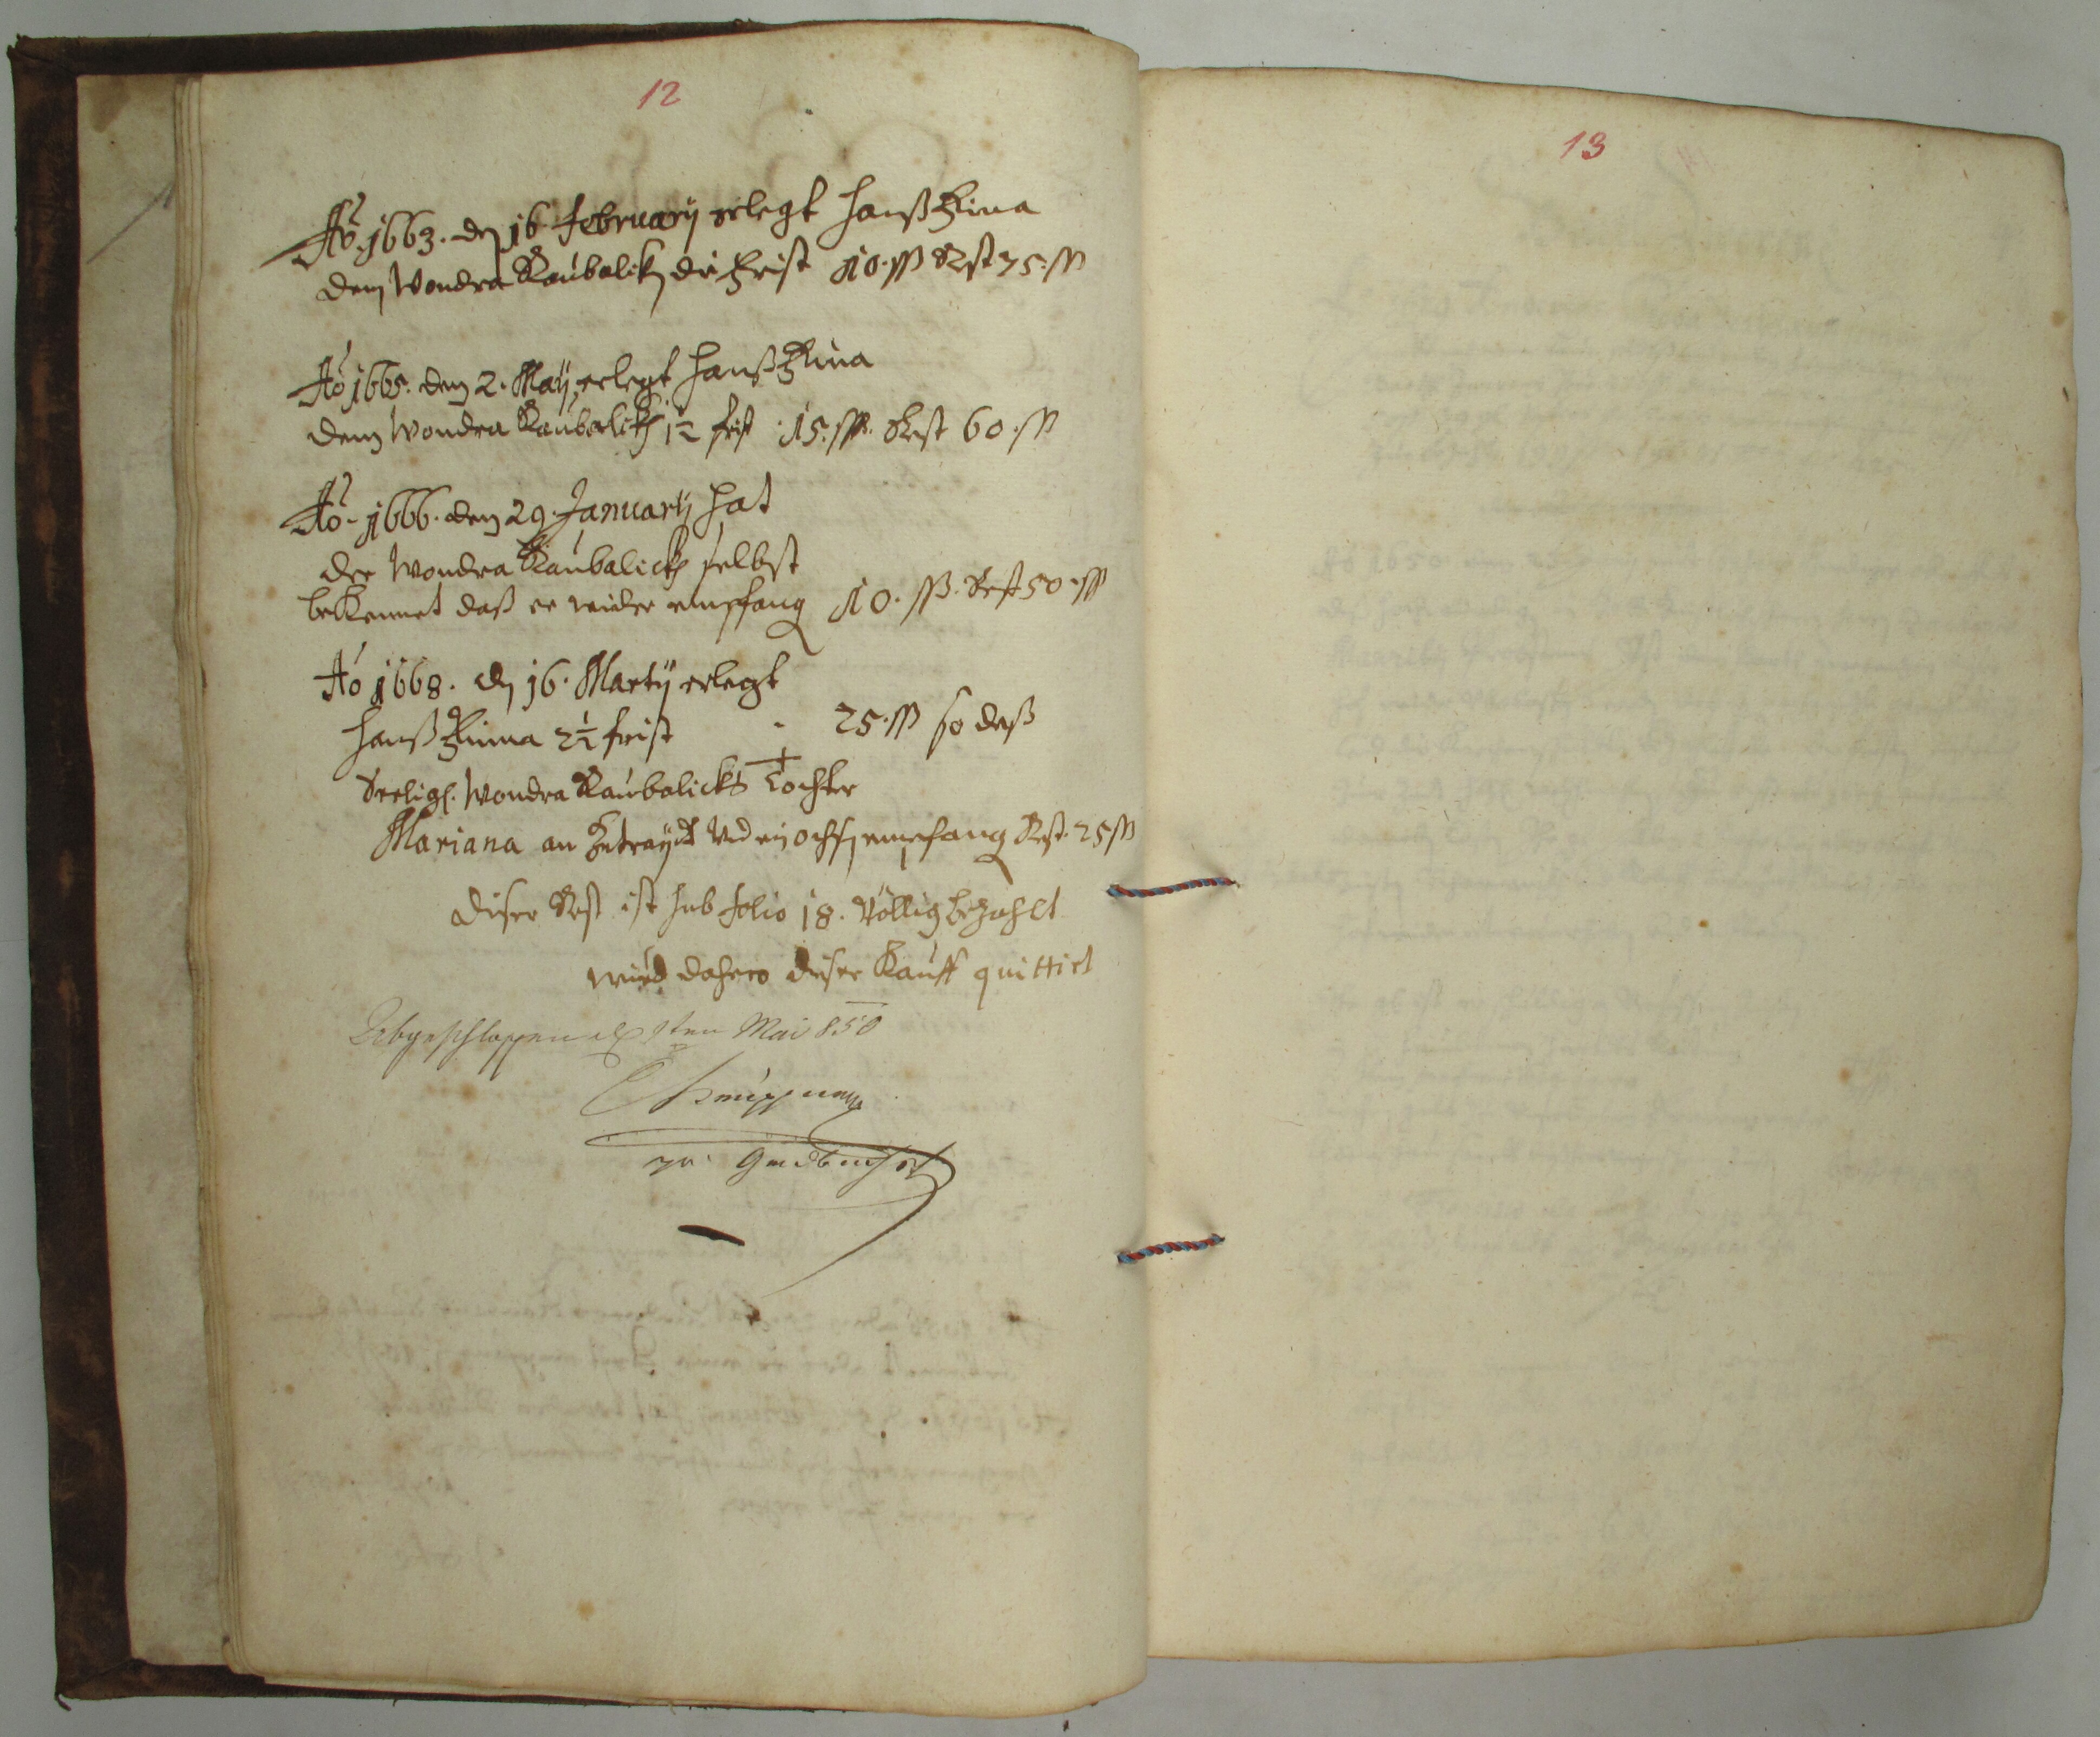 12
Aõ. 1663. den 16 February erlegt Hanß Zima
dem Wondra Raubalik die Frist 10. ßß Rest 75. ßß
Aõ 1665. den 2. May erlegt Hanß Zima
dem Wondra Raubalick 1½ frist 15. ßß. Rest 60. ßß
Aõ. 1666. den 29. January hat
der Wondra Raubalick selbst
bekennet daß er wider empfang 10. ßß. Rest 50. ßß
Aõ 1668. den 16. Marty erlegt
Hanß Zimma 2½ frist 25. ßß so daß
Seeligl. Wondra Raubalicks Tochter
Mariana an getraydt Vnd ein ochsen empfang Rest. 25 ßß
Diser Rest ist sub folio 18. Völlig bezahlt
wird dahero diser Kauff quittirt
Abgeschlossen ten Mai 850
Grundbuchs
13